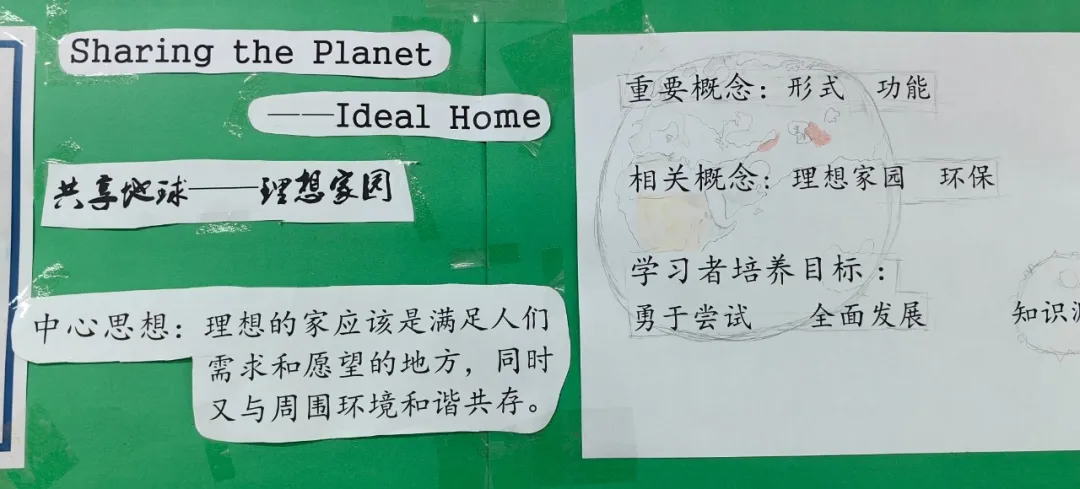 Sharing the Planet
——Ideal Home
共享地球——理想家园
中心思想：理想的家应该是满足人们
需求和愿望的地方，同时
又与周围环境和谐共存。
重要概念：形式 功能
相关概念：理想家园 环保
学习者培养目标：
勇于尝试 全面发展 知识